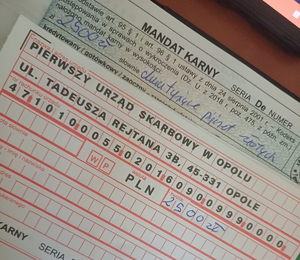 MANDAT KARNY
SERIA De NUMER
art. 95 § 1 i art. 96 § 1 ustawy z dnia 24 sierpnia 2001 r. - Kodeks
postępowania w sprawach o wykroczenia (Dz. U. z 2018 r. poz. 475, z późn. zm.)
nałożono mandat karny w wysokości:
2500 zł słownie dwa tysiące pięćset złotych
kredytowany / gotówkowy / zaoczny
PIERWSZY URZĄD SKARBOWY W OPOLU
UL. TADEUSZA REJTANA 3B, 45-331 OPOLE
47101000550201609009990000
W P PLN 2500 zł
KARNY SERIA